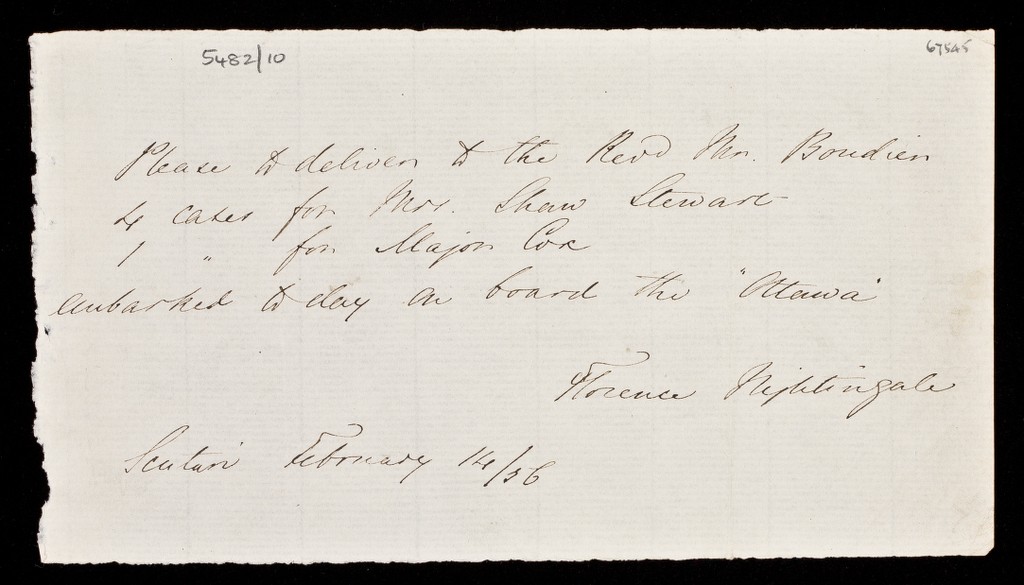 5482/10
67545
Please to deliver to the Revd Mr. Boudien
4 cases for Mrs. Shaw Stewart
1 " for Major Cox
embarked to day on board the "Ottawa"
Florence Nightingale
Scutari February 14/56